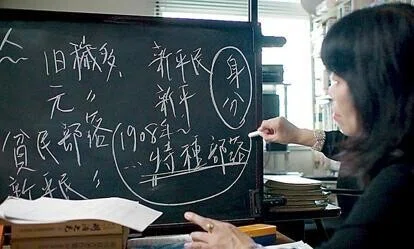 旧穢多、 新平民 身分
元 〃 新平
貧民部落 1908年~
…特種部落
新平民 〃